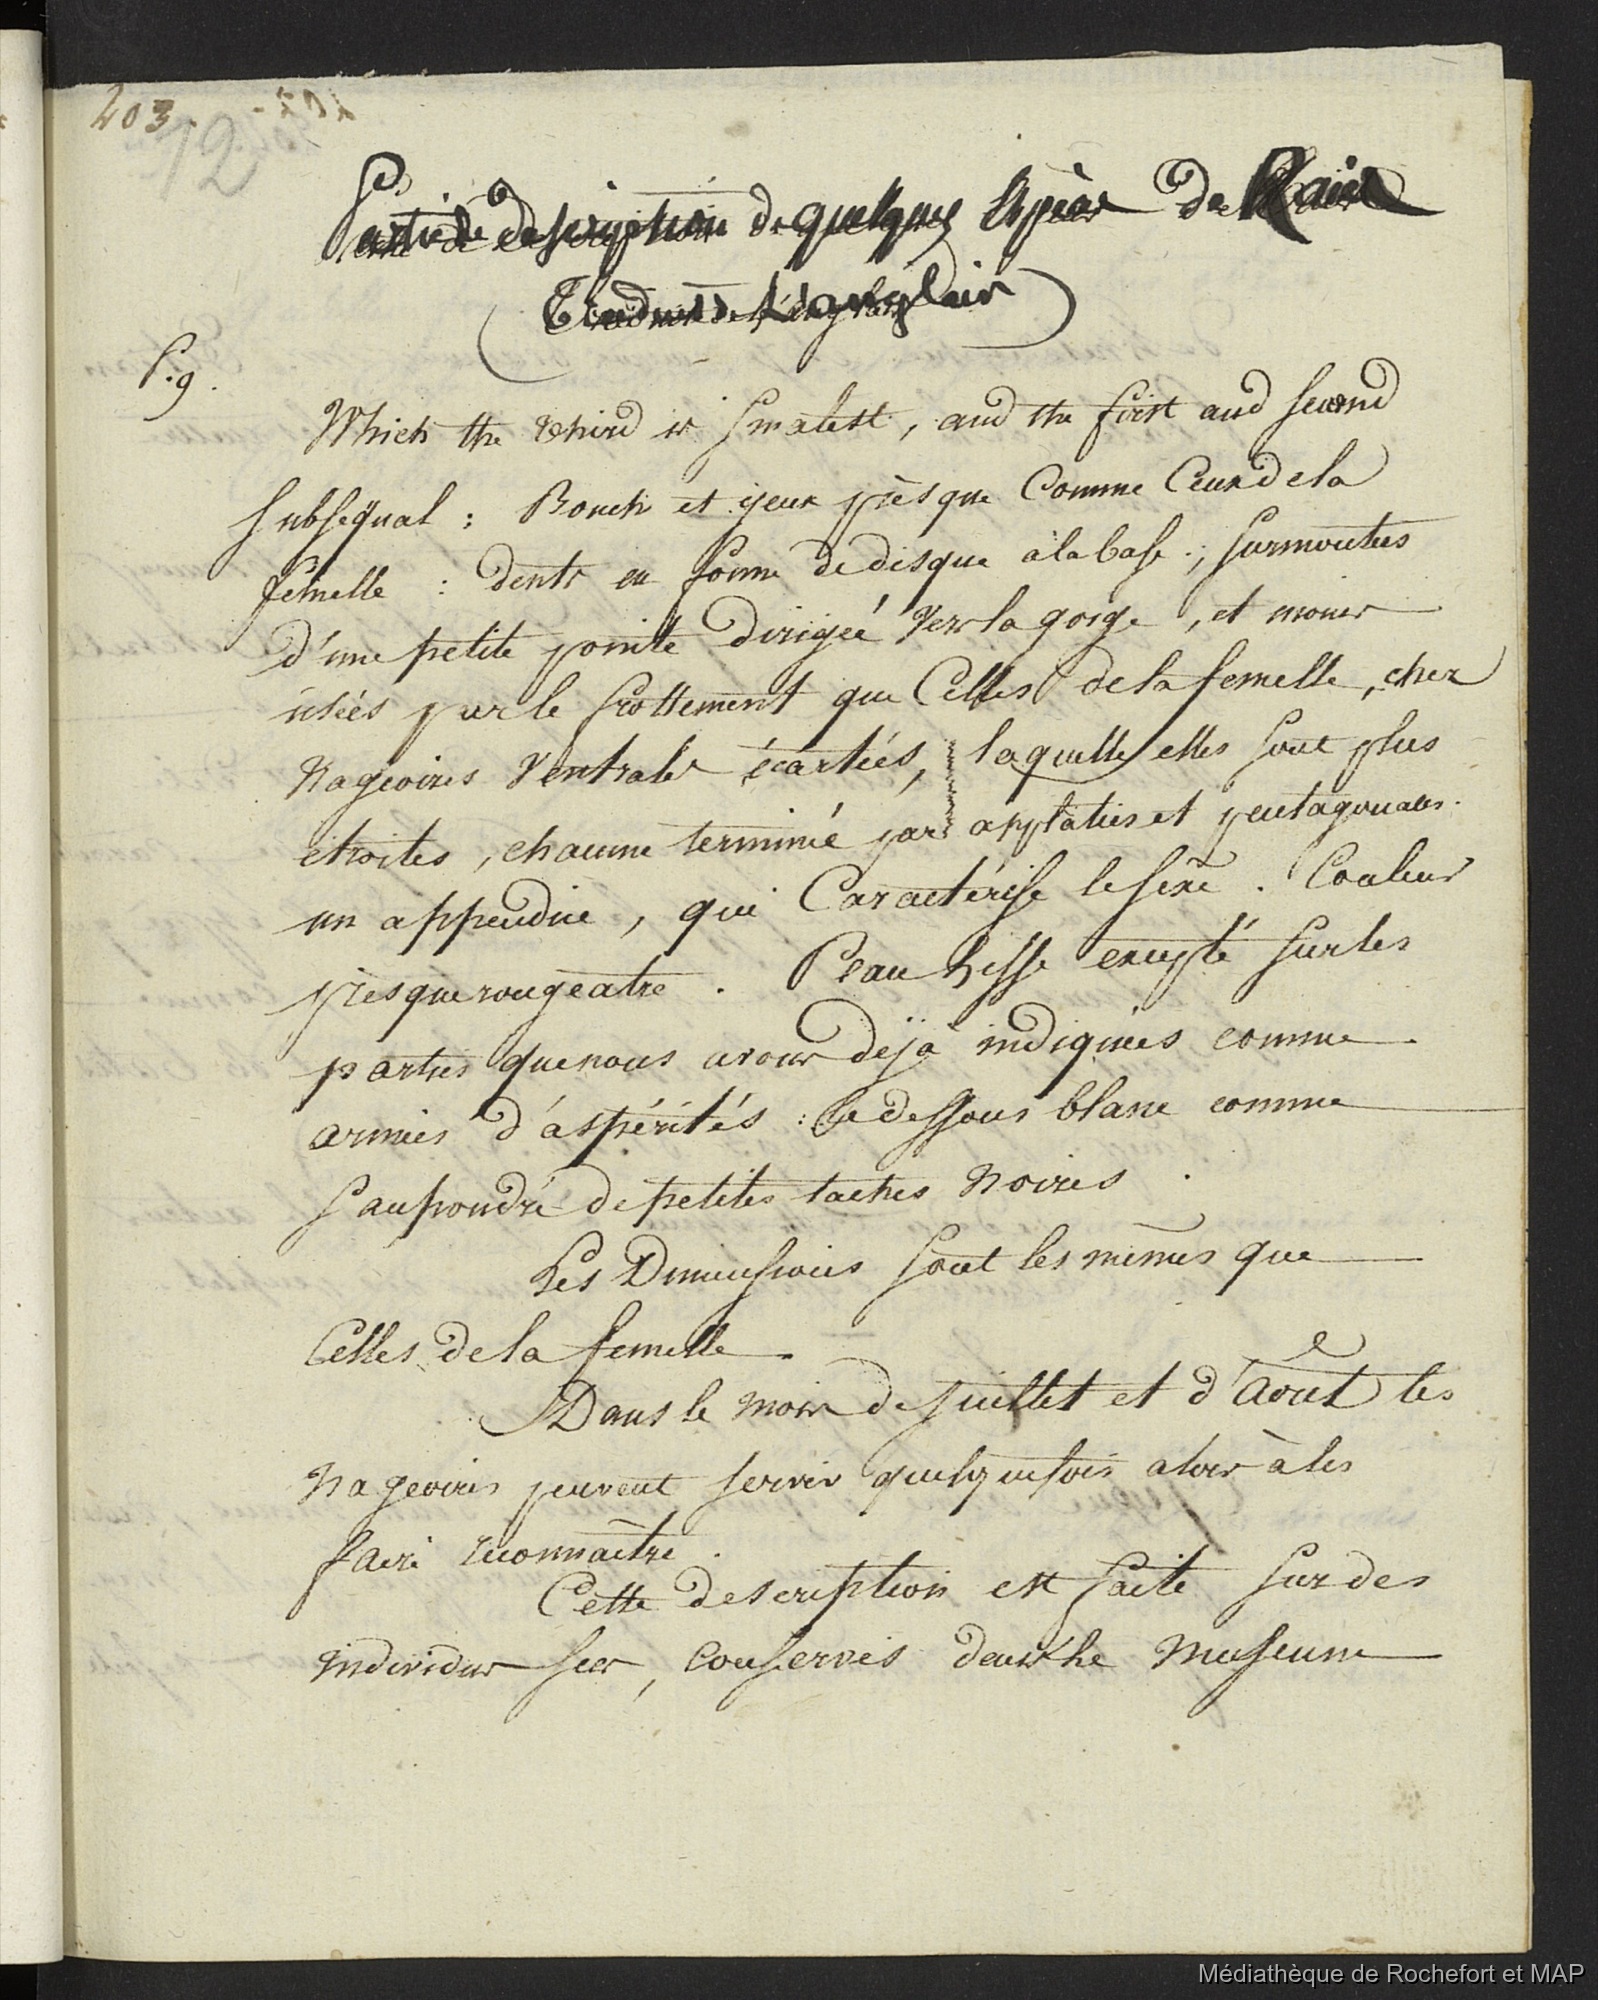 203.
12
Partie de description de quelques Espèces de Raies
(Traduit de L'anglais)
P. 9.
Which the third is smalest, and the first and second
subsequal : Bouch et yeux près que Comme Ceux de la
fémelle : dents en forme de disque à la base ; surmontées
d'une petite pointe dirigée vers la gorge, et moins
usées par le frottement que Celles de la femelle, chez
Nageoires Ventrales écartées, laquelle elles sont plus
etroites, chacune terminée par applaties et pentagonales.
un appendice, qui Caractérise le sexe. Couleur
près que rougeatre. Peau Lisse excepté sur les
parties que nous avons déja indiquées comme
armées d'aspérités : le dessous blanc comme
saupoudré de petites taches Noires.
Les Dimensions sont les mêmes que
Celles de la femelle.
Dans le mois de juillet et d'Août les
Nageoires peuvent servir quelquefois alors à les
faire reconnaître.
Cette description est faite sur des
individus secs, conservés dans le Museum
Médiathèque de Rochefort et MAP